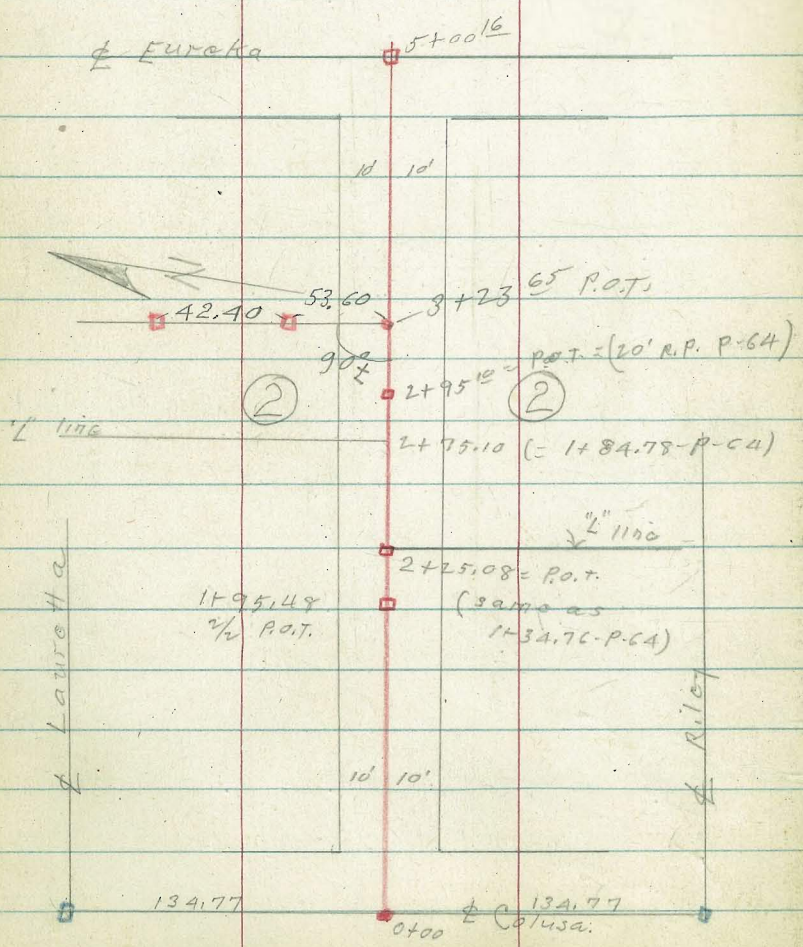 ℄ Eureka
5+00 16
10' 10'
N
42.40 53.60 3+23 65 P.O.T.
90°
2+95 10 = P.O.T. = (20' R.P. P-64)
2 2
"L" line
2+75.10 (= 1+84.78-P-64)
"L" line
2+25.08 = P.O.T.
(same as
1+34.76-P-64)
1+95.48
2/2 P.O.T.
℄ Lauretta
℄ Riley
10' 10'
134.77 134.77
0+00 ℄ Colusa.